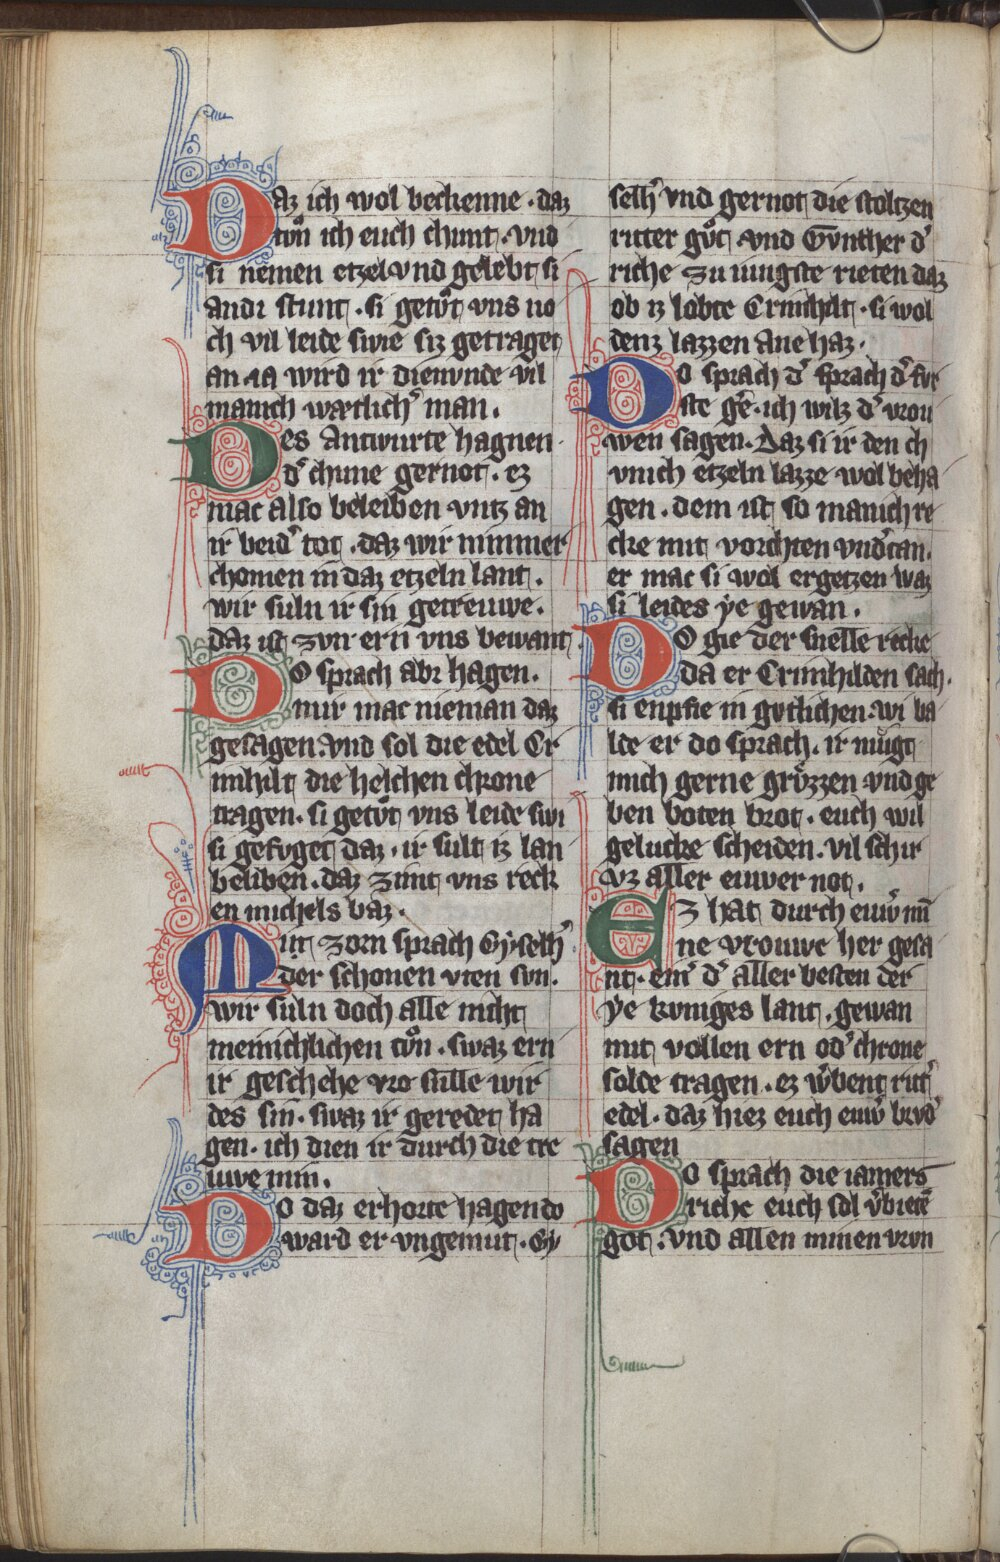 Daz ich wol bechenne · daz
tvͦn ich euch chunt · vnd
si nemen etzel vnd gelebt si
andi stunt · si getvͦt vns no
ch vil leide swie siz getraget
an · ia wird ir dienvnde vil
manich wætlichˀ man .
Des Antwurte hagnen ·
dˀ chune gernot · ez
mac also beleiben vntz an
ir beidˀ tot · daz wir nimmer
chomen in daz etzeln lant .
wir suln ir sin getreuwe .
daz ist zvn ern vns bewant
Do sprach abr hagen .
mir mac nieman daz
gesagen · vnd sol die edel Cr
imhilt die helchen chrone
tragen · si getvͦt vns leide swi
si gefvget daz · ir sult iz lan
beliben · daz zimt vns reck
en michels baz ·
Mit zorn sprach Gyselhˀ
der schonen vten svn .
wir suln doch alle nicht
meinichlichen tvͦn · swaz ern
ir geschehe vro sulle wir
des sin · swaz ir geredet ha
gen · ich dien ir durch die tre
uwe min .
Do daz erhorte hagen do
ward er vngemut · Gy
selhˀ vnd gernot die stoltzen
ritter gvͦt · vnd Gvnther dˀ
riche zu iungste rieten daz
ob iz lobte Crimhilt · si wol
denz lazzen ane haz ·
Do sprach dˀ sprach dˀ fvr
ste gˀe · ich wilz dˀ vrou
wen sagen · Daz si ir den ch
vnich etzeln lazze wol beha
gen · dem ist so manich re
cke mit vorchten vndˀtan ·
er mac si wol ergetzen waz
si leides ye gewan .
Do gie der snelle recke
da er Crimhilden sach ·
si enpfie in gvtlichen · wi ba
lde er do sprach · ir mvͦgt
mich gerne grvͦzzen vnd ge
ben boten brot · euch wil
gelucke scheiden · vil schir
vz aller euwer not .
Ez hat durch euwˀ mi
ne vrouwe her gesa
nt · einˀ dˀ aller besten der
ye kvniges lant · gewan
mit vollen ern odˀ chrone
solde tragen · ez wˀbent rittˀ
edel · daz hiez euch euwˀ brvdˀ
sagen
Do sprach die iamers
riche euch sol vˀbieten
got · vnd allen minen vron